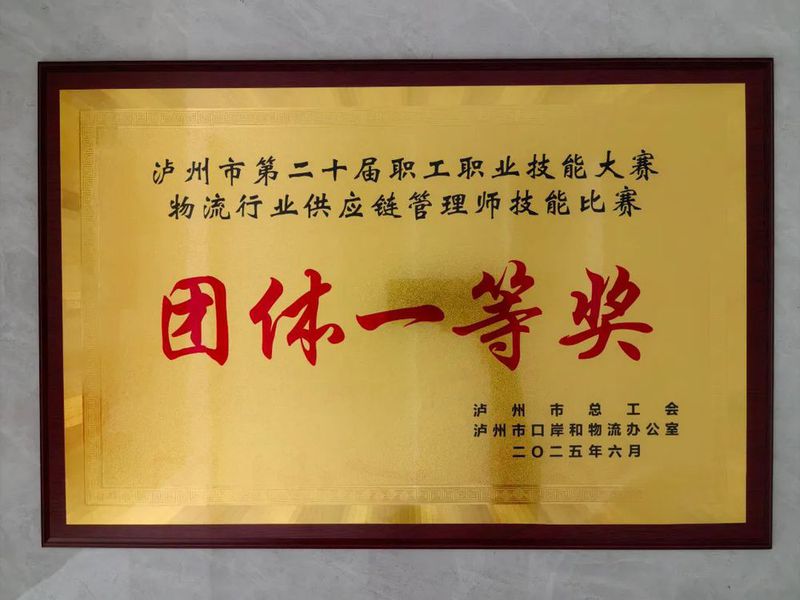 泸州市第二十届职工职业技能大赛
物流行业供应链管理师技能比赛
团体一等奖
泸州市总工会
泸州市口岸和物流办公室
二〇二五年六月